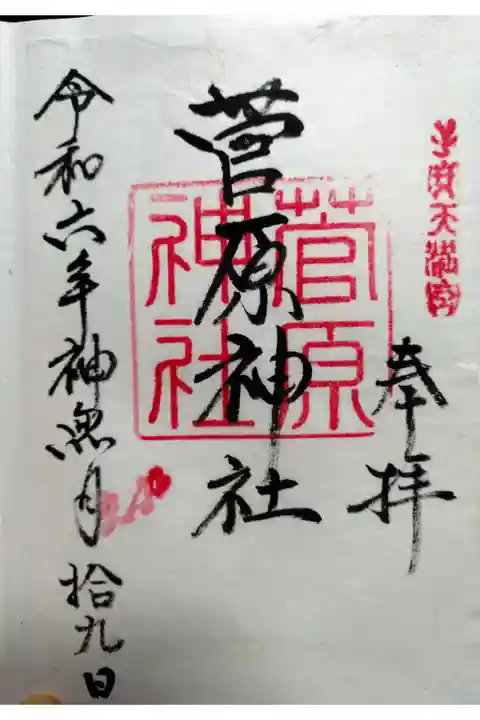 天満宮
奉拝
菅原神社
菅原
神社
令和六年神無月拾九日